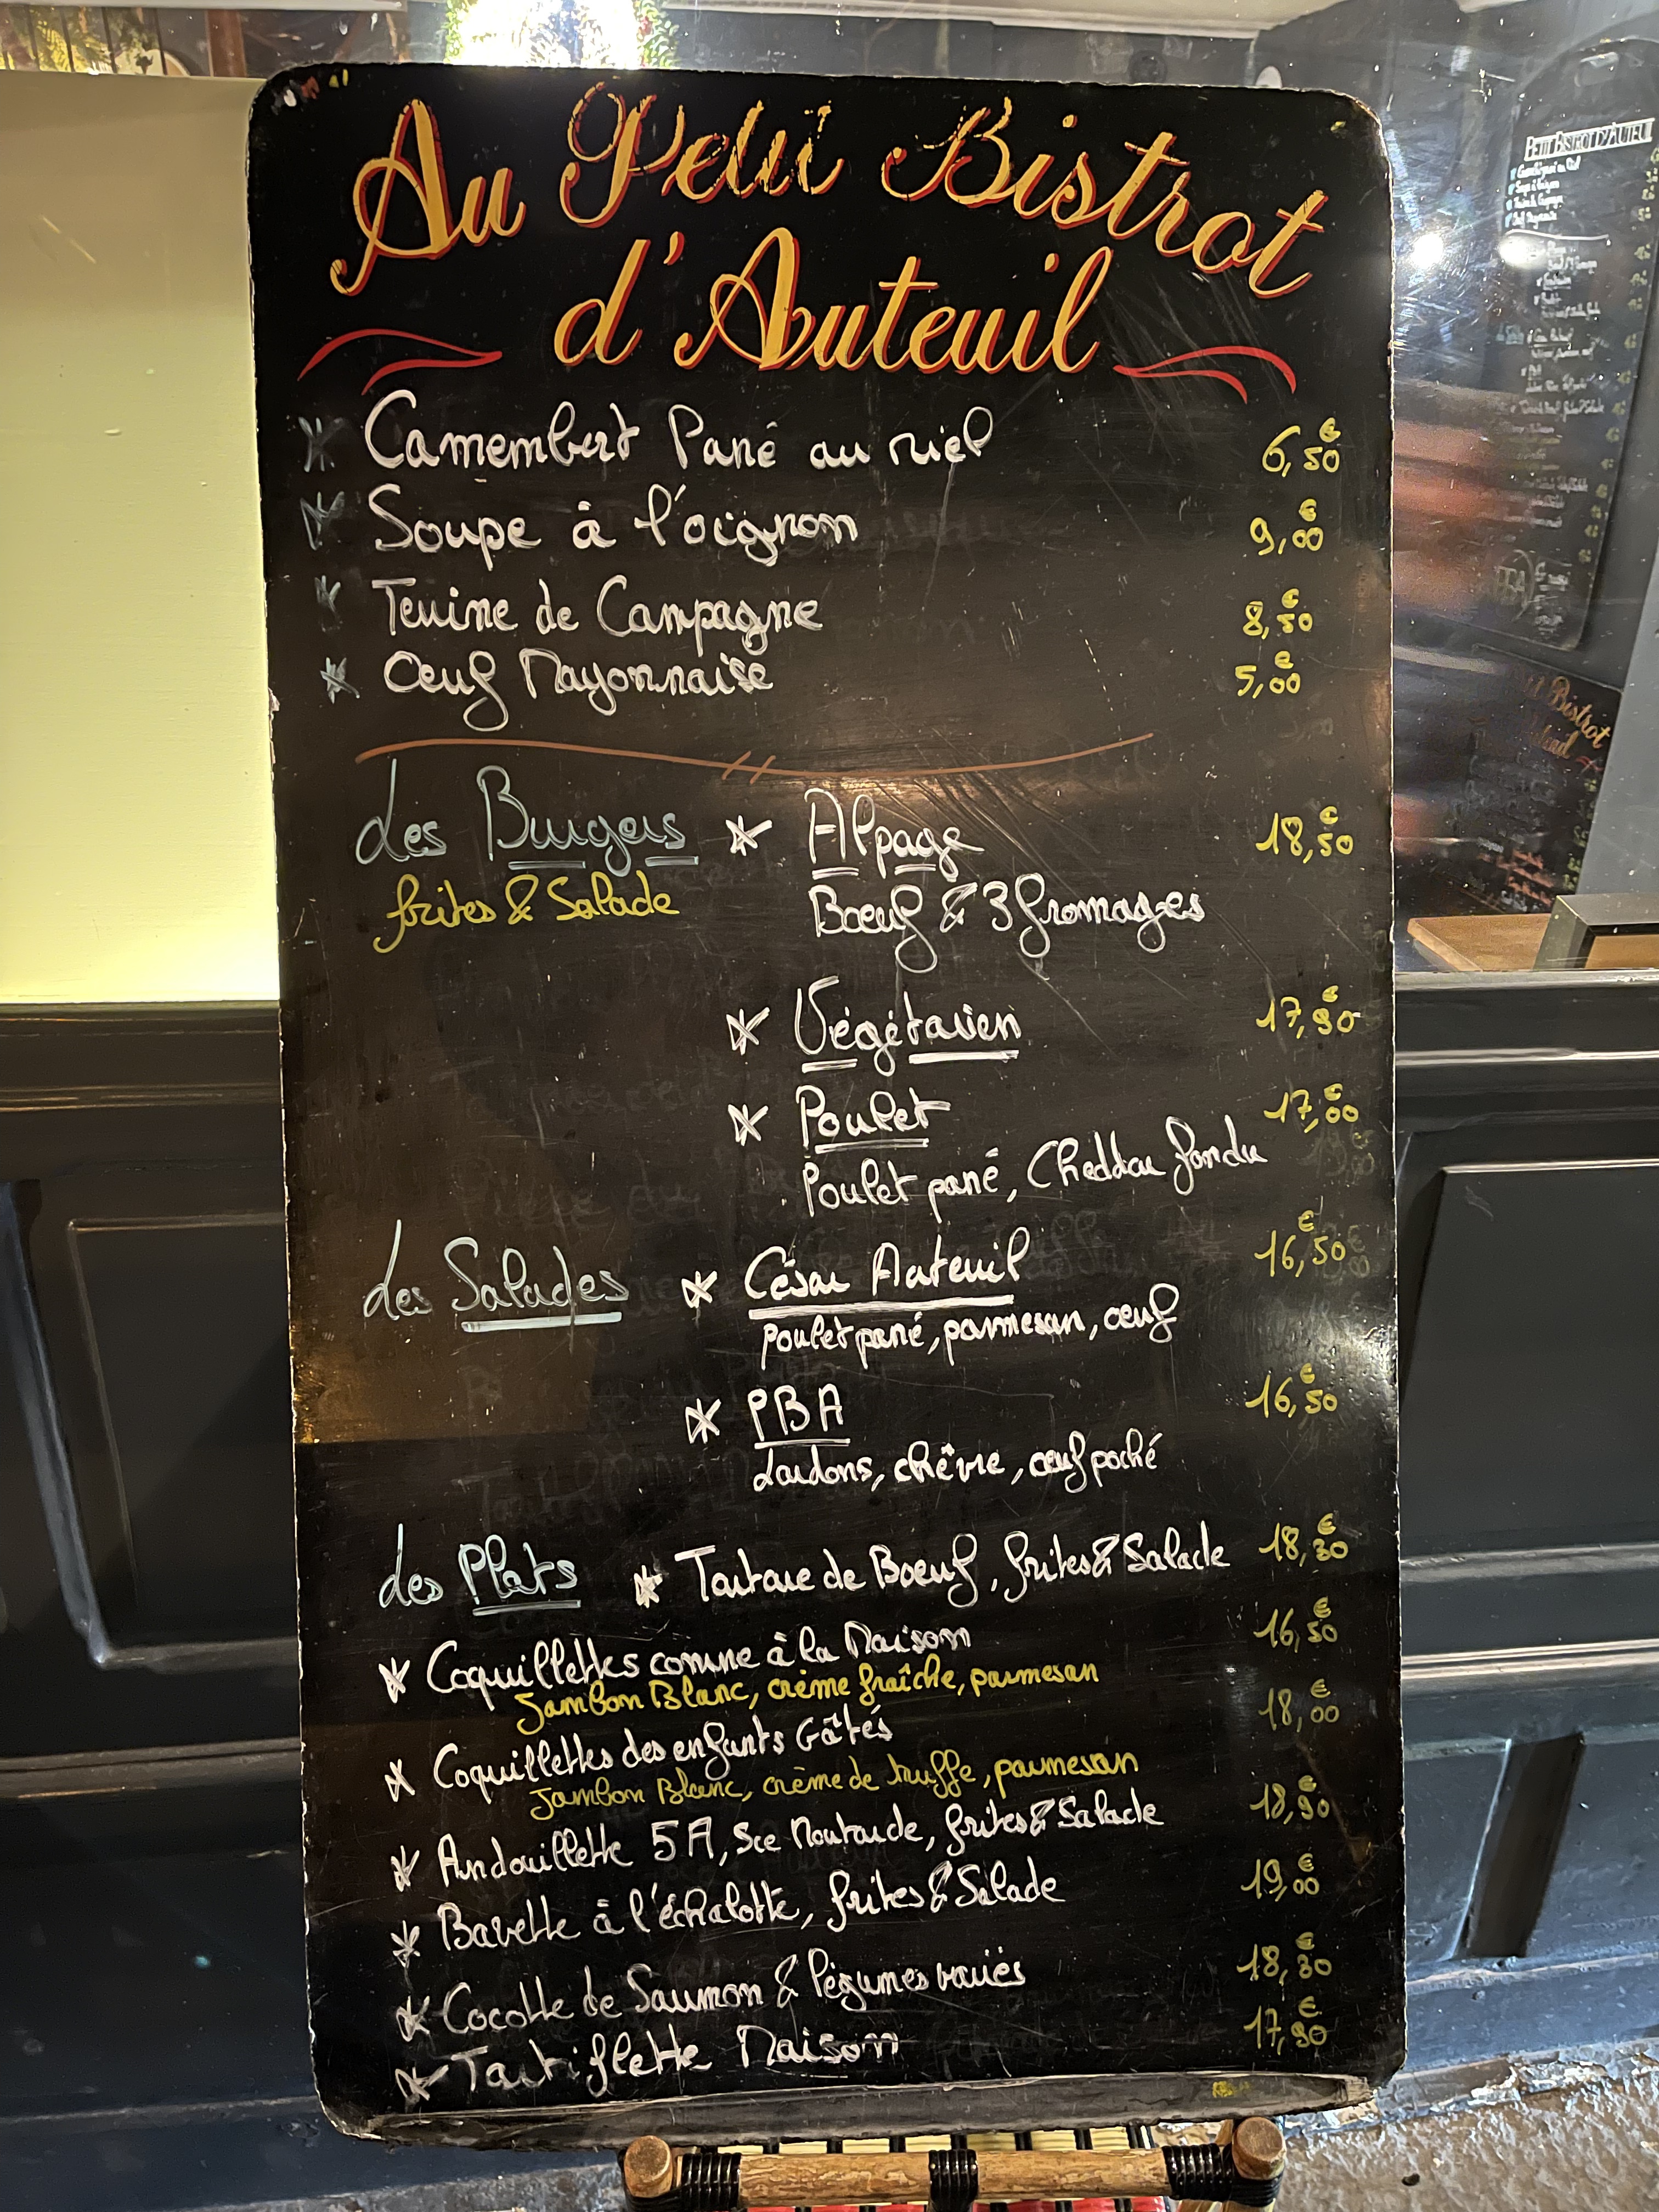 Au Petit Bistrot
d'Auteuil
Camembert Pané au miel 6,50€
Soupe à l'oignon 9,00€
Terrine de Campagne 8,50€
Œuf Mayonnaise 5,00€
Les Burgers * Alpage 18,50€
frites & Salade Bœuf & 3 fromages
* Végétarien 17,90€
* Poulet 17,00€
Poulet pané, Cheddar fondu
Les Salades * César Auteuil 16,50€
poulet pané, parmesan, œuf
* PBA 16,50€
Lardons, chèvre, œuf poché
Les Plats * Tartare de Bœuf, frites & Salade 18,30€
* Coquillettes comme à la Maison 16,50€
Jambon Blanc, crème fraîche, parmesan
* Coquillettes des enfants Gâtés 18,00€
Jambon Blanc, crème de truffe, parmesan
* Andouillette 5A, Sce Moutarde, frites & Salade 18,90€
* Bavette à l'échalotte, frites & Salade 19,00€
* Cocotte de Saumon & légumes variés 18,30€
* Tartiflette Maison 17,90€
PETIT BISTROT D'AUTEUIL
Bistrot